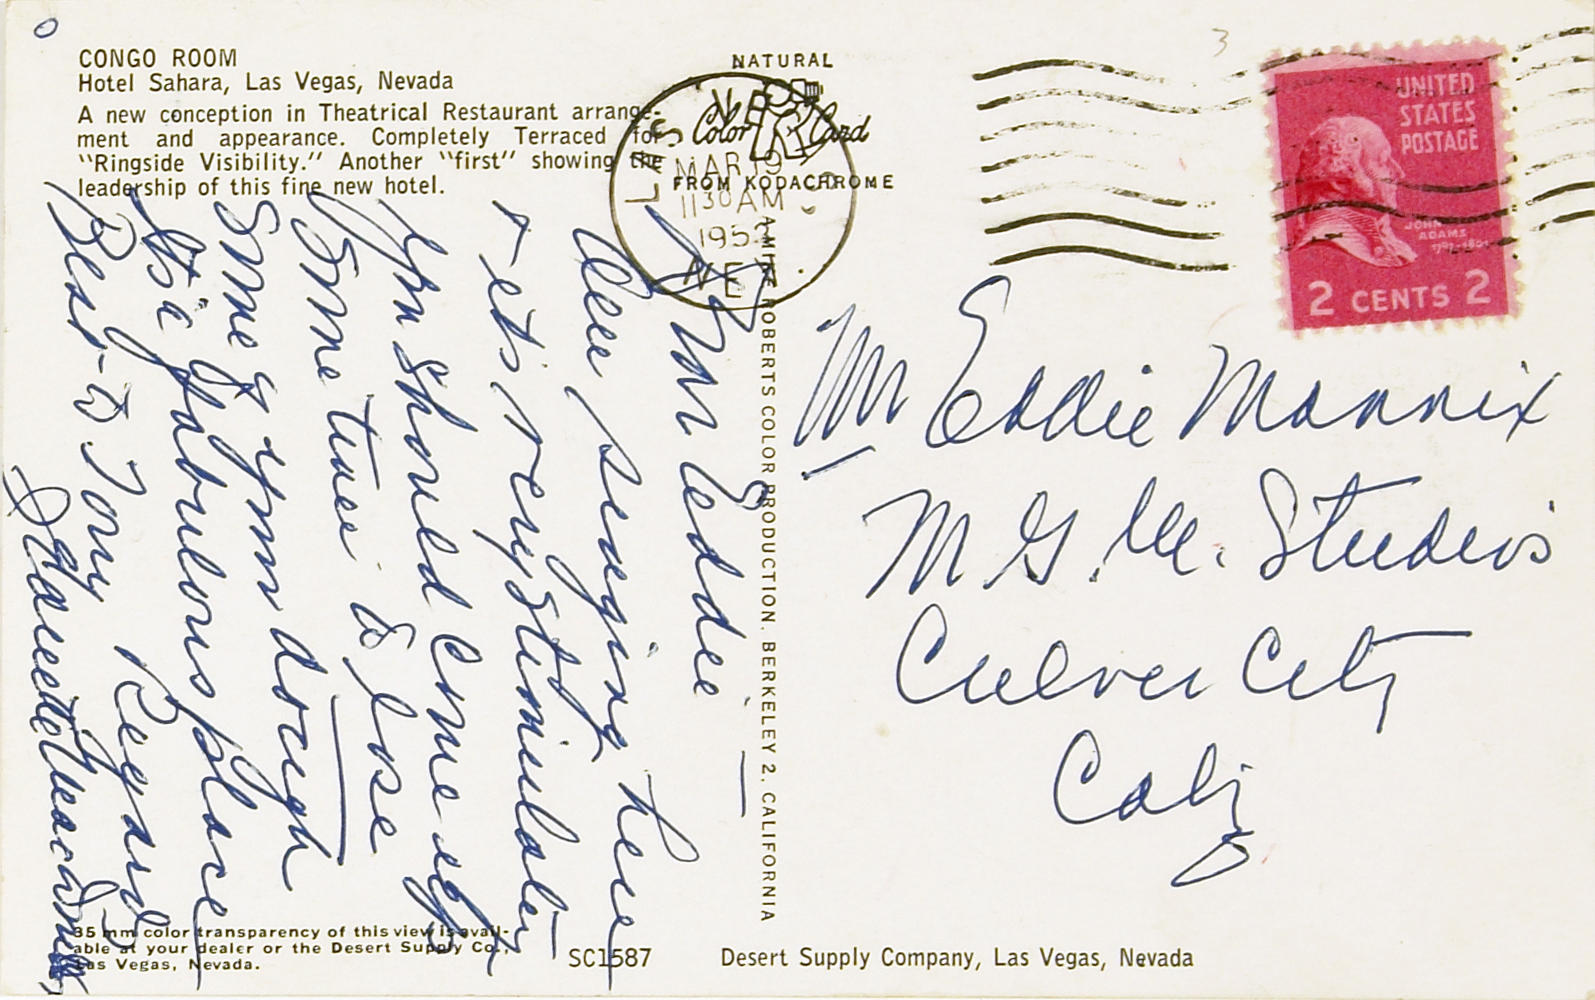 CONGO ROOM
Hotel Sahara, Las Vegas, Nevada
A new conception in Theatrical Restaurant arrange-
ment and appearance. Completely Terraced for
"Ringside Visibility." Another "first" showing the
leadership of this fine new hotel.
NATURAL
Color Card
FROM KODACHROME
LAS
MAR 19
11 30 AM
195
NEV
UNITED
STATES
POSTAGE
JOHN
ADAMS
1797-1801
2 CENTS 2
Mr Eddie
Am singing here
+ its very stimulating
You should come up
some time to lose
some of your dough
Its a fabulous place
Best to Tony Regards
Jeanette MacDonald
Mr Eddie Mannix
M.G.M. Studios
Culver City
Calif
MIKE ROBERTS COLOR PRODUCTION. BERKELEY 2, CALIFORNIA
35 mm color transparency of this view is avail-
able at your dealer or the Desert Supply Co.,
Las Vegas, Nevada.
SC1587
Desert Supply Company, Las Vegas, Nevada